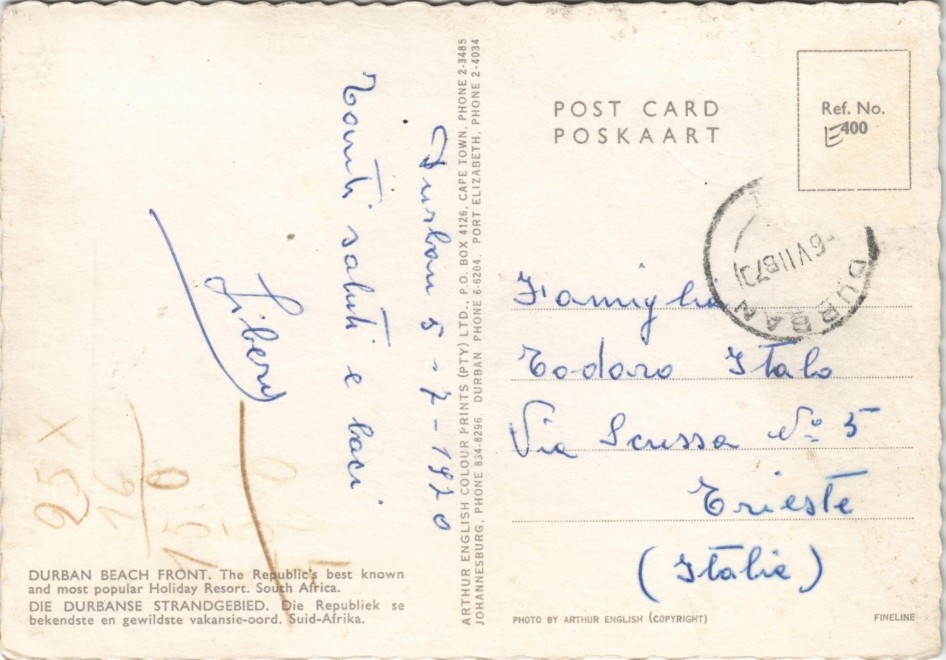 Durban 5-7-1970
Tanti saluti e baci
Libero
POST CARD
POSKAART
Ref. No.
E400
-6 VII 1970
DURBAN
Famiglia
Todaro Italo
Via Scussa No 5
Trieste
(Italia)
ARTHUR ENGLISH COLOUR PRINTS (PTY) LTD., P.O. BOX 4126, CAPE TOWN. PHONE 2-3485
JOHANNESBURG, PHONE 834-8296. DURBAN PHONE 6-6204. PORT ELIZABETH, PHONE 2-4034
25 x
16
DURBAN BEACH FRONT. The Republic's best known
and most popular Holiday Resort. South Africa.
DIE DURBANSE STRANDGEBIED. Die Republiek se
bekendste en gewildste vakansie-oord. Suid-Afrika.
PHOTO BY ARTHUR ENGLISH (COPYRIGHT)
FINELINE